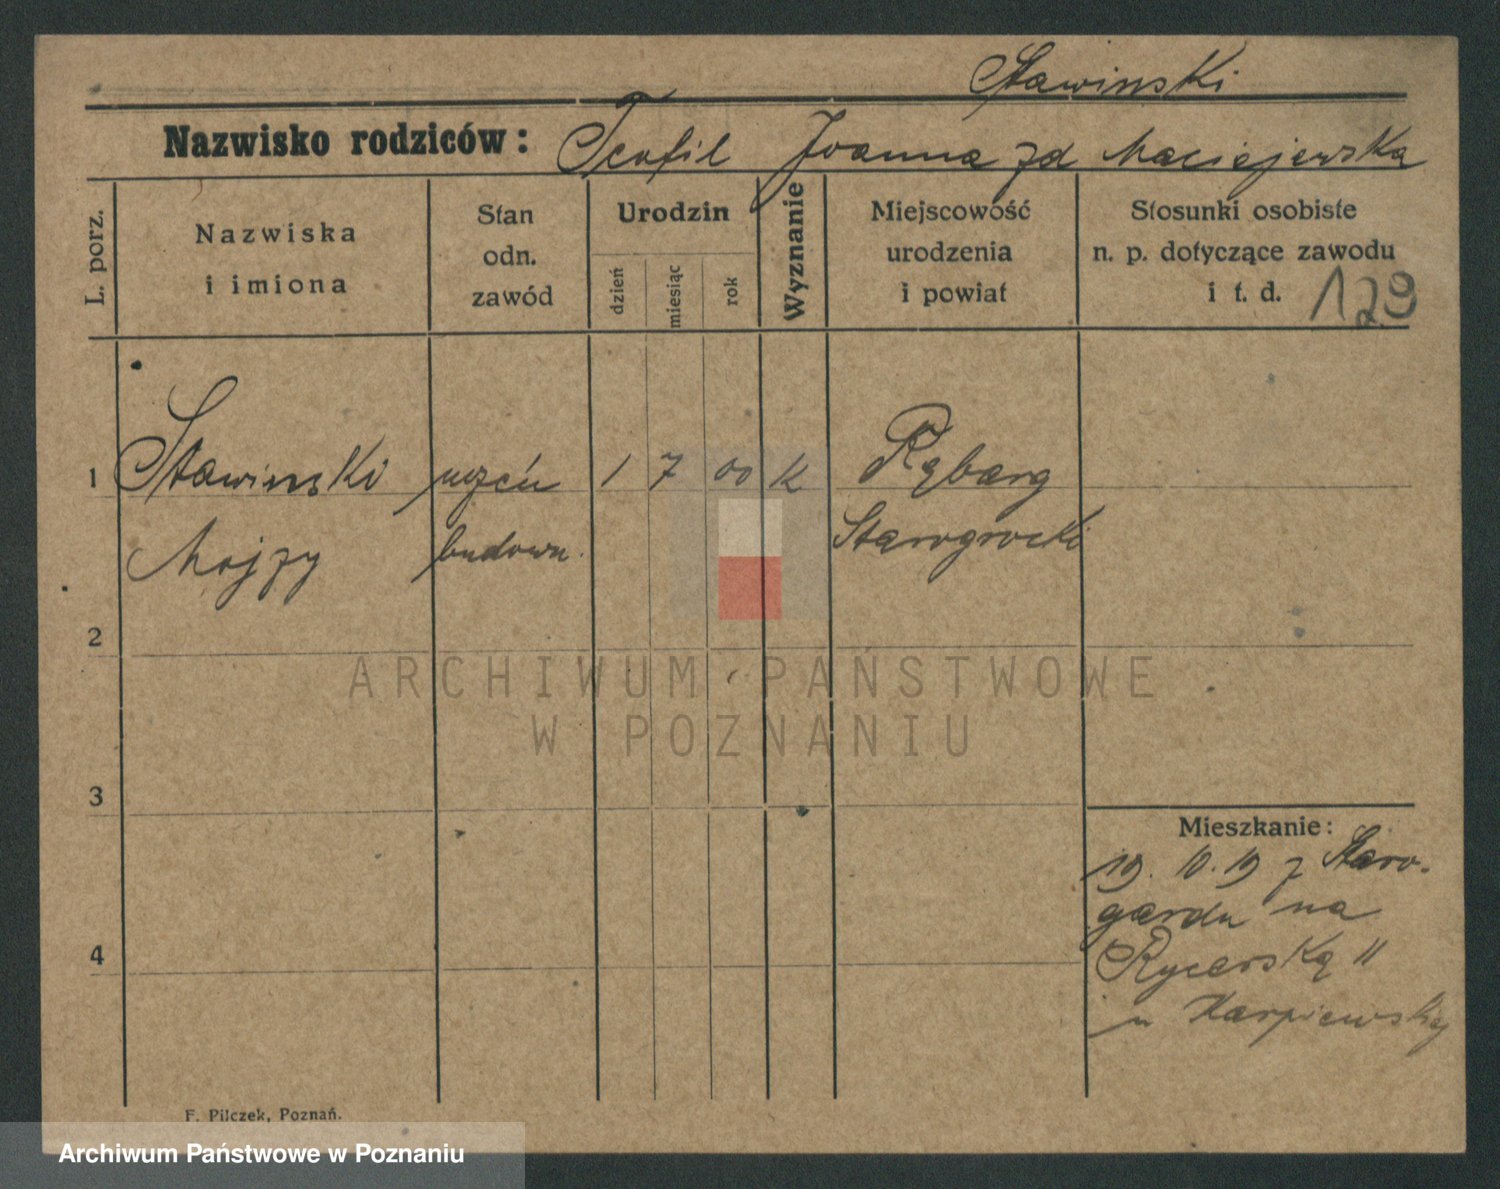 Stawinski
Nazwisko rodziców: Teofil Joanna zd Maciejewska
L. porz.
Nazwiska
i imiona
Stan
odn.
zawód
Urodzin
dzień
miesiąc
rok
Wyznanie
Miejscowość
urodzenia
i powiat
Stosunki osobiste
n. p. dotyczące zawodu
i t. d. 129
1 Stawinski uczeń 1 7 00 k
Mojzy budown. Starogrocki
2
ARCHIWUM PAŃSTWOWE
W POZNANIU
3
Mieszkanie:
19. 10. 19 z Staro-
gardu na
4 Rycerską 11
u Karpiewskiej
F. Pilczek, Poznań.
Archiwum Państwowe w Poznaniu